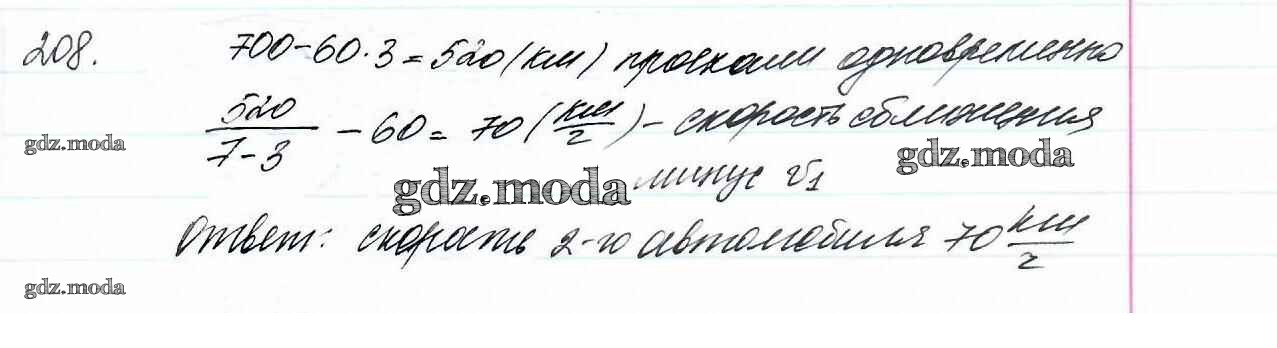 208. 700-60·3=520(км) проехали одновременно
520/(7-3) - 60 = 70 (км/ч) - скорость сближения
gdz.moda
gdz.moda
gdz.moda
минус v₁
Ответ: скорость 2-го автомобиля 70 км/ч
gdz.moda